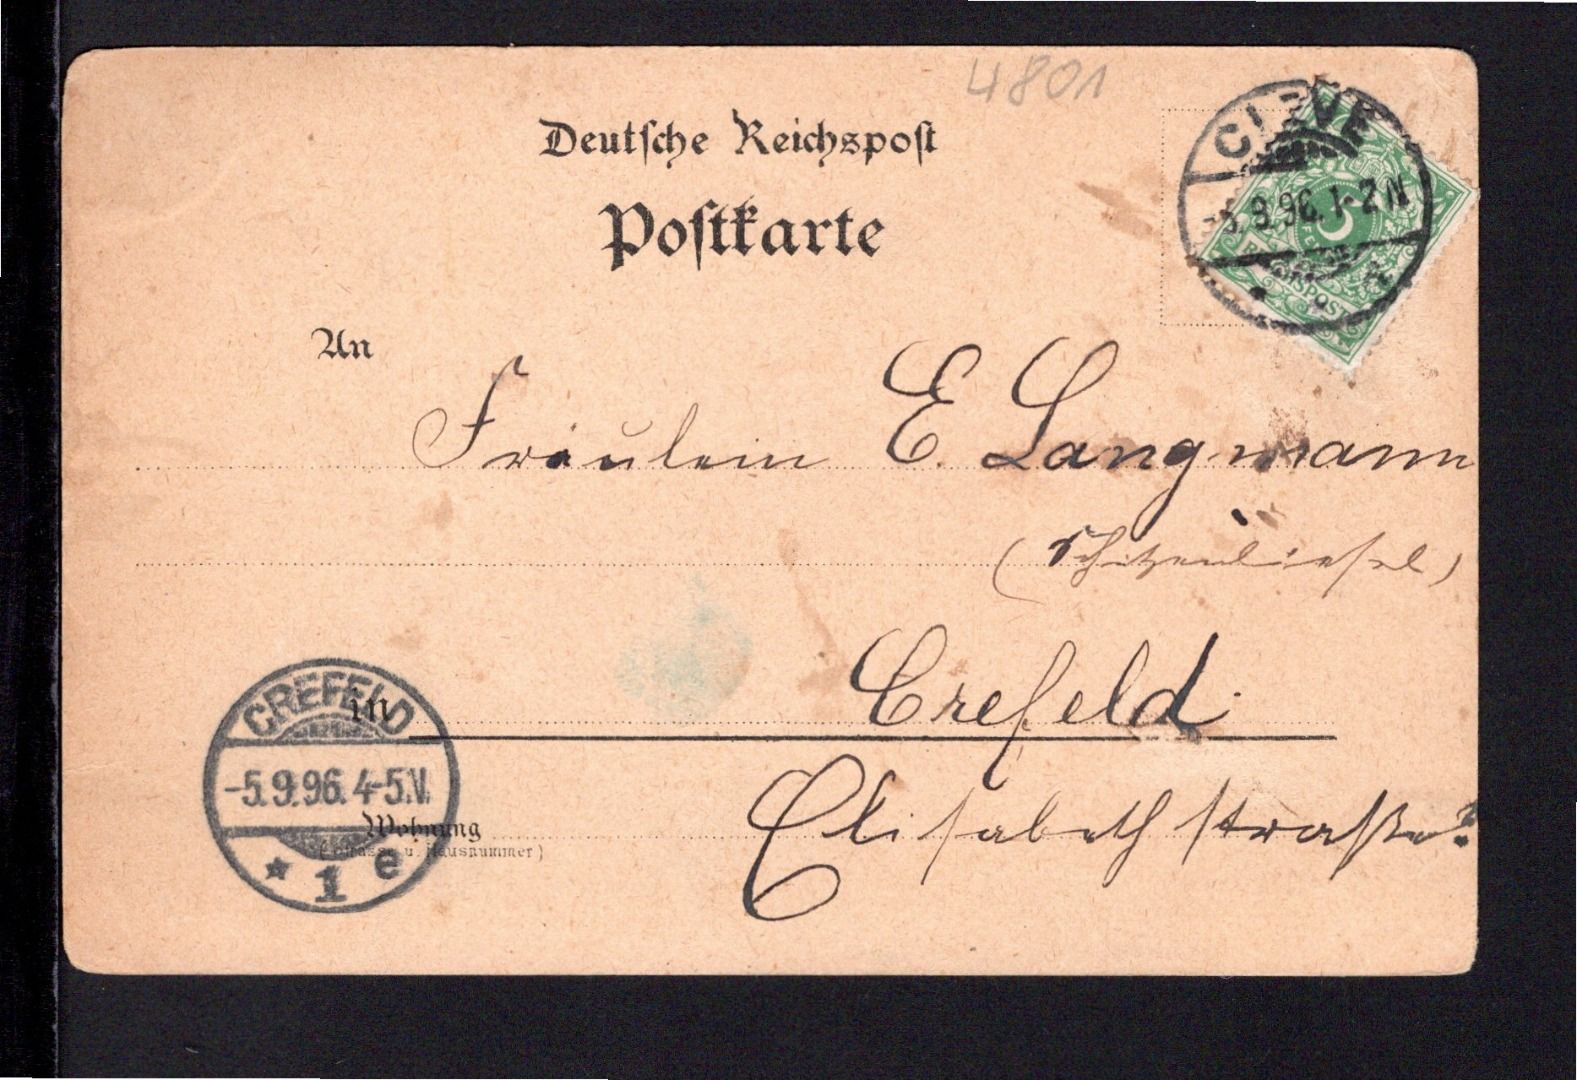 4801
Deutsche Reichspost
Postkarte
CLEVE
-5.9.96.1-2N
REICHSPOST
An
Fräulein E. Langmann
(Schützenliesel)
CREFELD
-5.9.96.4-5.V.
* 1 e
in Crefeld
Wohnung Elisabethstraße ?
(Strasse u. Hausnummer)